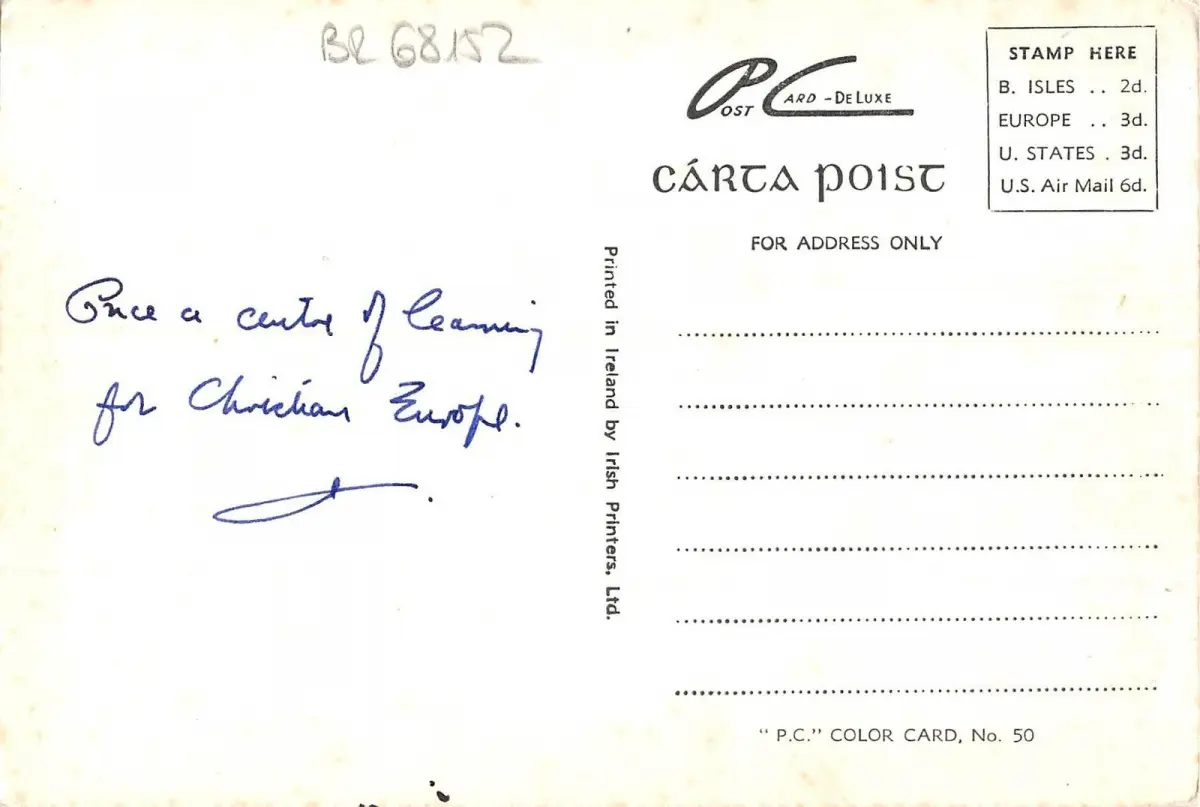 BR 68152
POST CARD - DE LUXE
CÁRTA POIST
FOR ADDRESS ONLY
STAMP HERE
B. ISLES .. 2d.
EUROPE .. 3d.
U. STATES . 3d.
U.S. Air Mail 6d.
Once a centre of learning
for Christian Europe.
Printed in Ireland by Irish Printers, Ltd.
" P.C." COLOR CARD, No. 50